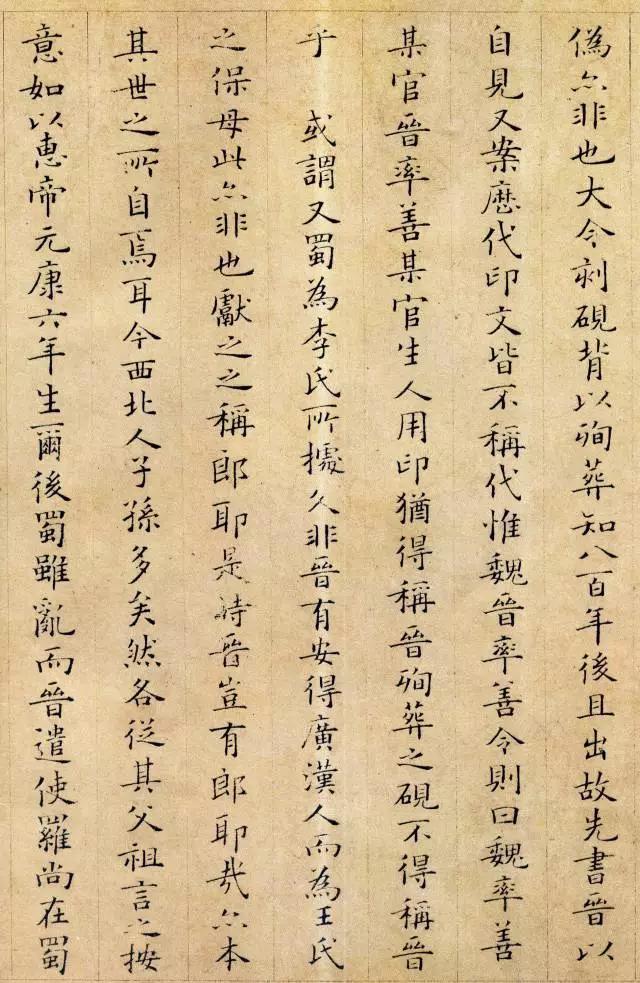 偽亦非也大令刻硯背以殉葬知八百年後且出故先書晉以
自見又案歷代印文皆不稱代惟魏晉率善令則曰魏率善
某官晉率善某官生人用印猶得稱晉殉葬之硯不得稱晉
乎 或謂又蜀為李氏所據久非晉有安得廣漢人而為王氏
之保母此亦非也獻之之稱郎耶是時晉豈有郎耶哉亦本
其世之所自焉耳今西北人子孫多矣然各從其父祖言之按
意如以惠帝元康六年生爾後蜀雖亂而晉遣使羅尚在蜀